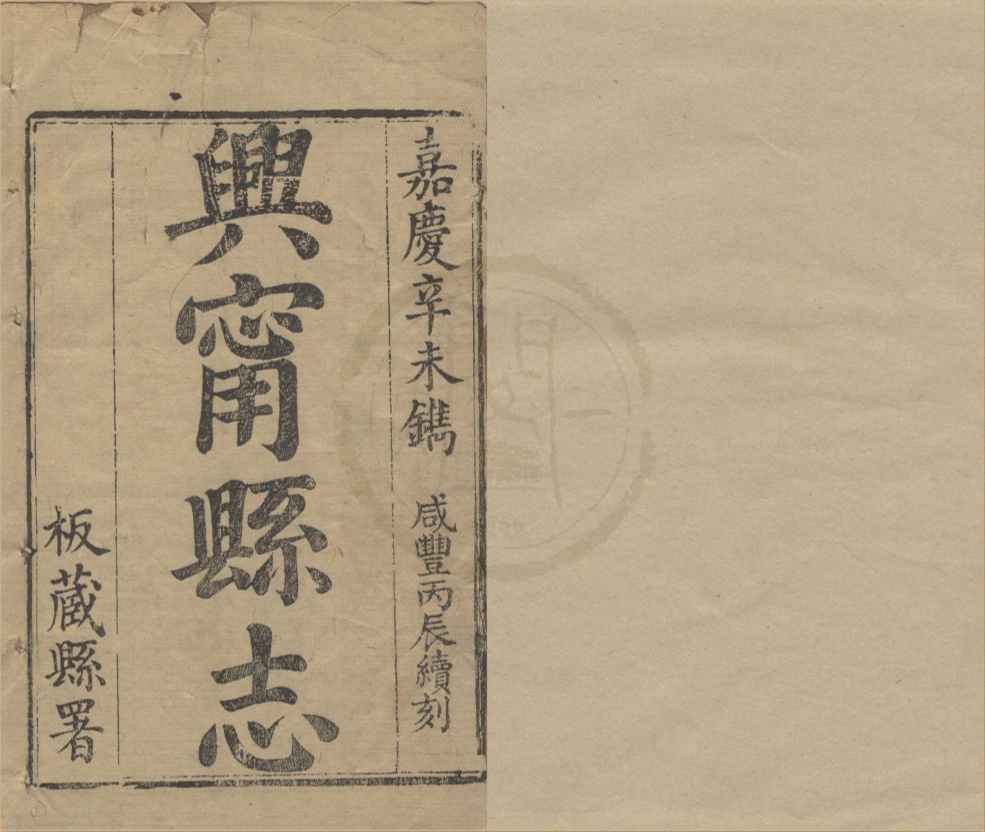 嘉慶辛未鐫 咸豐丙辰續刻
興甯縣志
板蔵縣署